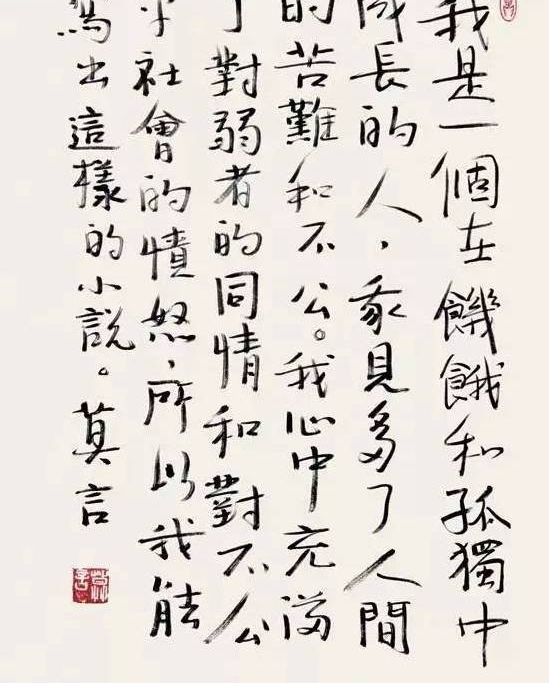 我是一個在饑餓和孤獨中
成長的人，我見多了人間
的苦難和不公。我心中充滿
了對弱者的同情和對不公
平社會的憤怒，所以我能
寫出這樣的小說。莫言
莫言